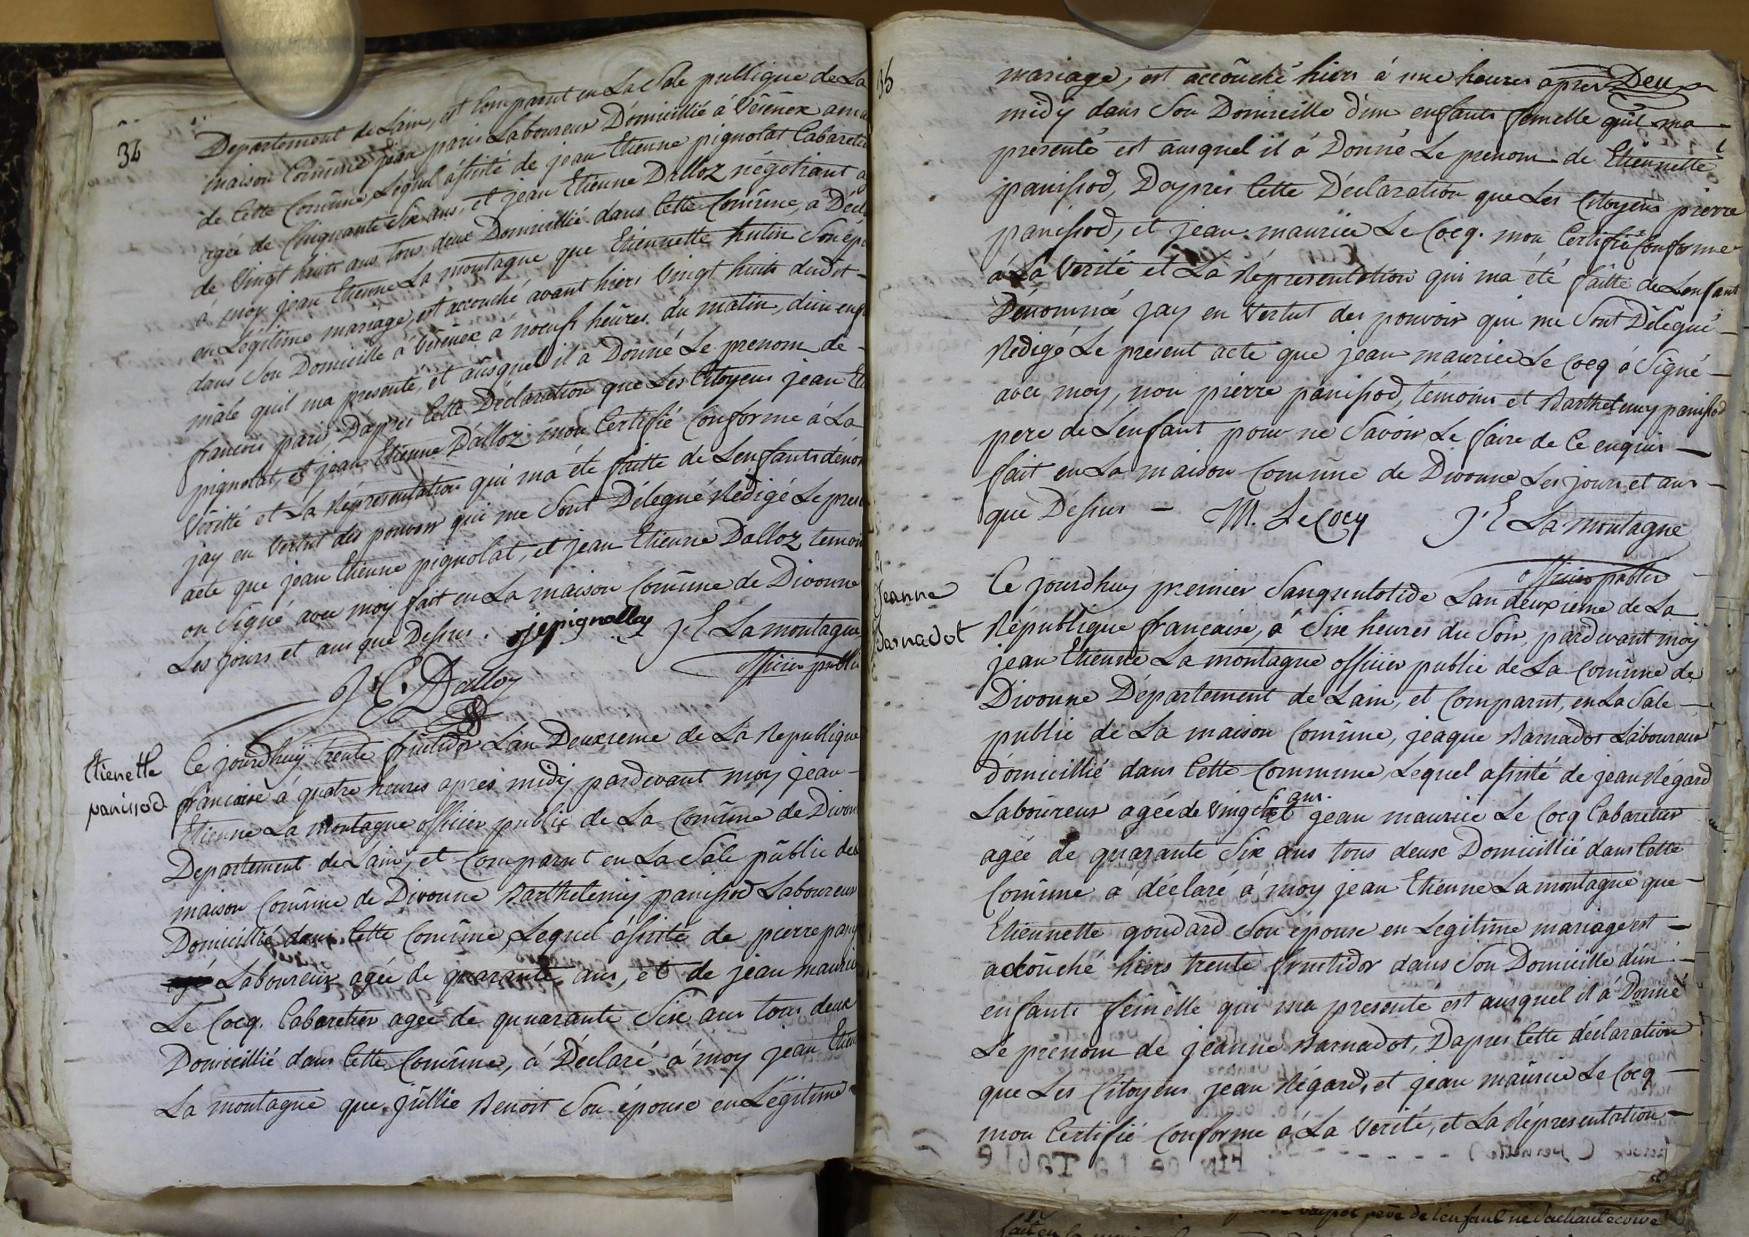 34
Département de Lain, est comparut en La Sale publique de La
maison Comune jean paris Laboureur Domicillié à Vésenex
de Cette Comune, Lequel assisté de jean Etienne pignolat Cabaretier
agée de Cinquante Six ans, et jean Etienne Dalloz négotiant
de Vingt huits ans tous deux Domicillié dans Cette Comune, à Décl
à moy jean Etienne La montague que Etiennette hutin Son ép
en Légitime mariage, est accouché avant hiers Vingt huits dudit
dans Son Domicille à Vésenex à noeufs heures du matin, d'un enf
mâle quil ma presenté, et auquel il à Donné Le prenom de
francois paris Dapres Cette Déclaration que Les Citoyens jean Et
pignolat, et jean Etienne Dalloz mon Certifié Conforme à La
Vérité et La Représentation qui ma été faitte de Lenfants dénom
jay en Vertut des pouvoir qui me Sont Délegué Rédigé Le pres
acte que jean Etienne pignolat, et jean Etienne Dalloz temoin
on Signé avec moy fait en La maison Comune de Divonne
Les jours et ans que Dessus. jepignollaz J E Lamontague
officier public
J. E. Dalloz
Etienette
panissod
Ce jourdhuy trente fructidor Lan Deuxieme de La Republique
francaise à quatre heures apres midy pardevant moy jean
Etienne La Montague officier public de La Comune de Divon
Departement de Lain, et Comparut en La Sale public de
maison Comune de Divonne Barthelemy panissod Laboureur
Domicillié dans Cette Comune, Lequel assisté de pierre pani
Laboureur agée de quarante ans, et de jean maurice
Le Cocq. Cabaretier agée de quuarante Six ans tous deux
Domicillié dans Cette Comune, à Déclaré à moy jean Etien
La montague que jullie Benoit Son épouse en Légitime
36
mariage, est accouché hiers à une heures apres Deu
midy dans Son Domicille dun enfants femelle quil ma
presenté est auquel il à Donné Le prenom de Etiennette
panissod, Dapres Cette Déclaration que Les Citoyens pierre
panissod, et jean maurice Le Cocq. mon Certifié Conforme
à La Verité et La Réprésentation qui ma été faitte de Lenfant
Dénommé jay en Vertut des pouvoir qui me Sont Délegué
Redigé Le present acte que jean maurice Le Cocq à Signé
avec moy, non pierre panissod, témoins et Barthelemy panissod
pere de Lenfant pour ne Savoir Le faire de Ce enquis
fait en La maison Comune de Divonne Les jours et ans
que Dessus M. Le Cocq J E La montague
officier public
Jeanne
Barnadot
Ce jourdhuy premier Sanqulotide Lan deuxieme de La
République francaise, à Six heures du Soir, pardevant moy
jean Etienne La montague officier public de La Comune de
Divonne Département de Lain, et Comparut, en La Sale
public de La maison Comune, jeaque Barnadot Laboureur
domicillié dans Cette Commune, Lequel assisté de jean Régard
Laboureur agée de Vingt ans. et jean maurice Le Cocq Cabaretier
agée de quarante Six ans tous deux Domicillié dans Cette
Comune a déclaré à moy jean Etienne La montague que
Etiennette goudard Son épouse en Legitime mariage est
accouché hiers trente fructidor dans Son Domicille dun
enfants femelle qui ma presenté est auquel il à Donné
Le prenom de jeanne Barnadot, Dapres Cette déclaration
que Les Citoyens jean Régard, et jean maurice Le Cocq
mon Certifié Conforme à La Verité, et La Réprésentation